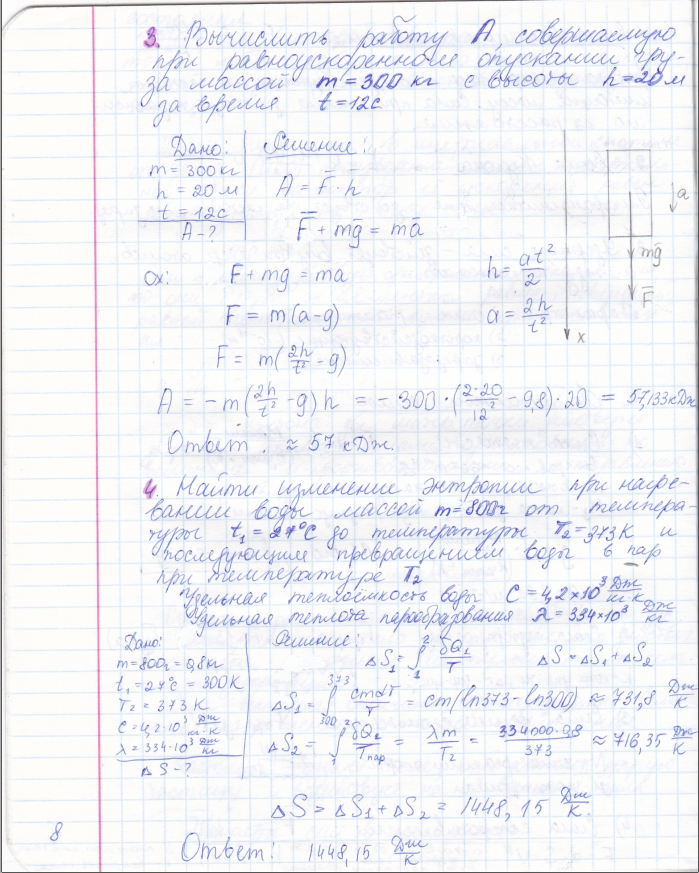 3. Вычислить работу A, совершаемую
при равноускоренном опускании гру-
за массой m=300 кг с высоты h=20м
за время t=12с
Дано:
m=300кг
h=20м
t=12с
A-?
Решение:
A = F̄·h̄
F̄+mḡ = mā
ox: F+mg=ma
F = m(a-g)
F = m(2h/t² - g)
h = at²/2
a = 2h/t²
a
mḡ
F̄
x
A = -m(2h/t² - g)h = -300·(2·20/12² - 9,8)·20 = 57,133кДж
Ответ: ≈57 кДж.
4. Найти изменение энтропии при нагре-
вании воды массой m=800г от темпера-
туры t₁=27°C до температуры T₂=373К и
последующим превращением воды в пар
при температуре T₂
Удельная теплоёмкость воды C = 4,2×10³ Дж/кг·К
Удельная теплота парообразования λ = 334×10³ Дж/кг
Дано:
m=800г=0,8кг
t₁=27°C=300К
T₂=373К
C=4,2·10³ Дж/кг·К
λ=334·10³ Дж/кг
ΔS-?
Решение:
ΔS₁ = ∫₁² δQ₁/T ΔS=ΔS₁+ΔS₂
ΔS₁ = ∫₃₀₀³⁷³ cmdT/T = cm(ln373-ln300) ≈ 731,8 Дж/К
ΔS₂ = ∫₁² δQ₂/Tпар = λm/T₂ = 334000·0,8/373 ≈ 716,35 Дж/К
ΔS = ΔS₁+ΔS₂ = 1448,15 Дж/К.
Ответ: 1448,15 Дж/К
8